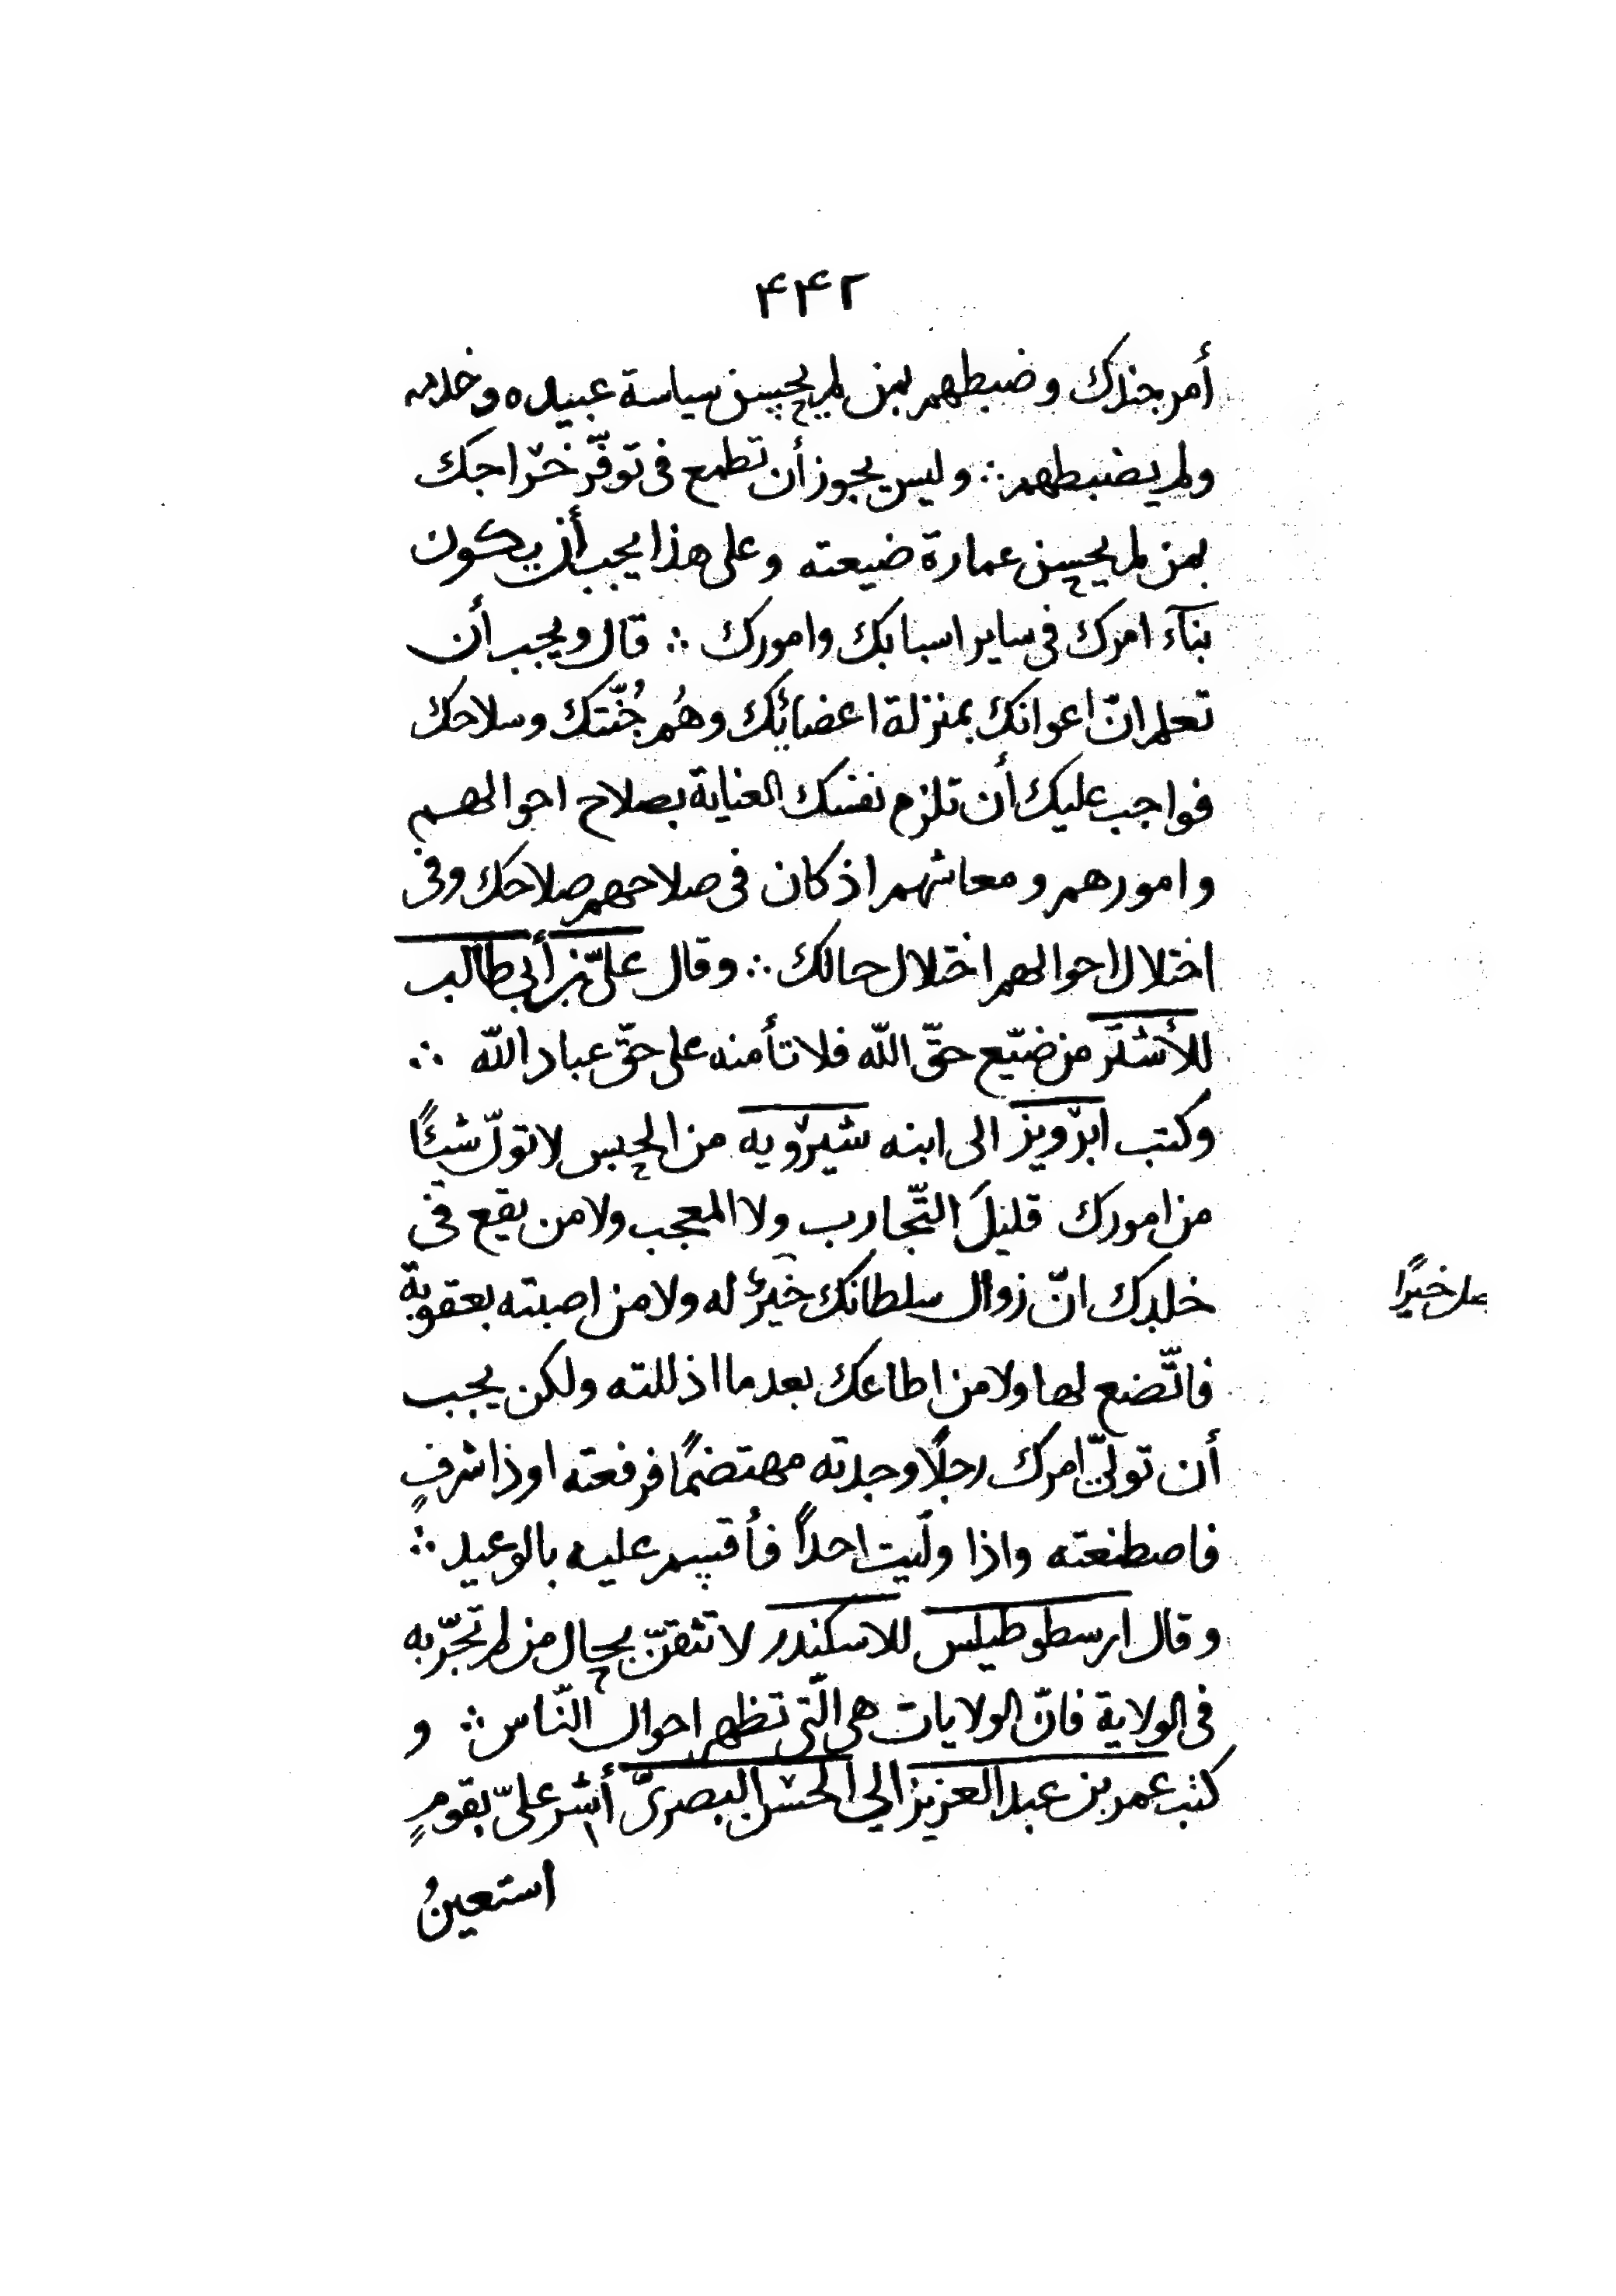 ۴۴۲
أمر جندك وضبطهم بمن لم يحسن سياسة عبيده وخدمه
ولم يضبطهم ∴ وليس يجوز أن تطمع فى توفّر خراجك
بمن لم يحسن عمارة ضيعته وعلى هذا يجب أن يكون
بنآء امرك فى ساير اسبابك وامورك ∴ قال ويجب أن
تعلم انّ اعوانك بمنزلة اعضائك وهُم جُنّتك وسلاحك
فواجب عليك أن تلزم نفسك العناية بصلاح احوالهم
وامورهم ومعاشهم اذ كان فى صلاحهم صلاحك وفى
اختلال احوالهم اختلال حالك ∴ وقال علىّ بن أبى طالب
للأشتَر من ضيّع حقّ اللّه فلا تأمنه على حقّ عباد اللّه ∴
وكتب ابرويز الى ابنه شيرويه من الحبس لا تولّ شيئًا
من امورك قليلَ التّجارب ولا المعجب ولا من يقع فى
خلدِك انّ زوال سلطانك خيرٌ له ولا من اصبته بعقوبة
صل خيرًا
فاتّضع لها ولا من اطاعك بعد ما اذللته ولكن يجب
أن تولّى امرك رجلًا وجدته مهتضمًا فرفعته او ذا شرفٍ
فاصطنعته واذا ولّيت احداً فأقسم عليه بالوعيد ∴
وقال ارسطوطيلس للاسكندر لا تثقنّ بحال من لم تجرّبه
فى الولاية فانّ الولايات هى الّتى تظهر احوال النّاس ∴ و
كتب عمر بن عبد العزيز الى الحسن البصرىّ أشر علىّ بقومٍ
استعينُ